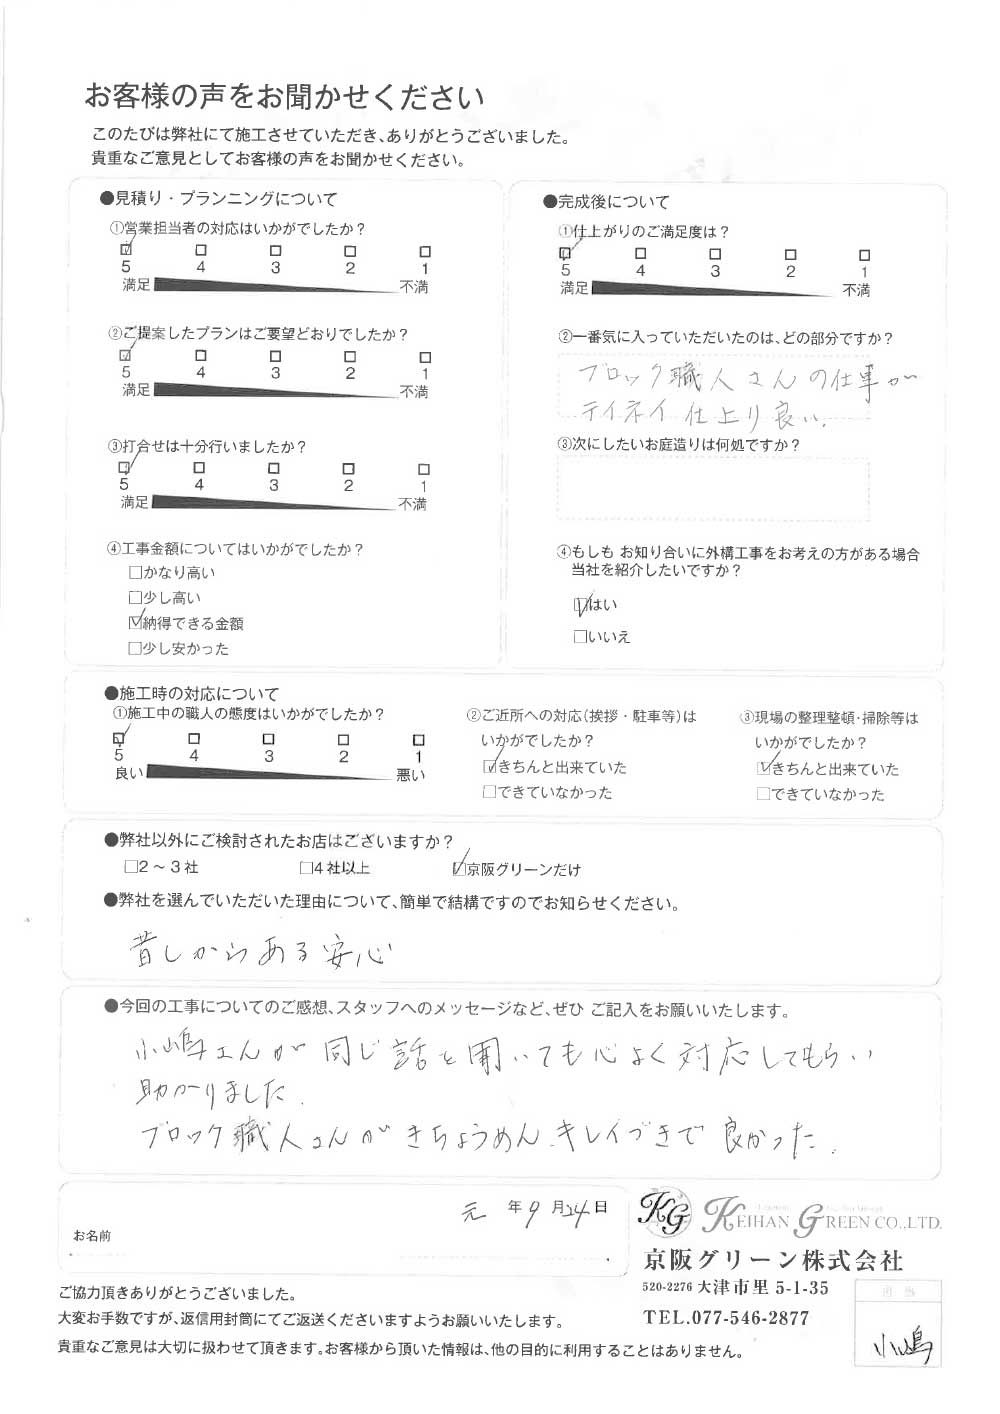 お客様の声をお聞かせください
このたびは弊社にて施工させていただき、ありがとうございました。
貴重なご意見としてお客様の声をお聞かせください。
●見積り・プランニングについて
①営業担当者の対応はいかがでしたか?
5 4 3 2 1
満足 不満
②ご提案したプランはご要望どおりでしたか?
5 4 3 2 1
満足 不満
③打合せは十分行いましたか?
5 4 3 2 1
満足 不満
④工事金額についてはいかがでしたか?
□かなり高い
□少し高い
☑納得できる金額
□少し安かった
●完成後について
①仕上がりのご満足度は?
5 4 3 2 1
満足 不満
②一番気に入っていただいたのは、どの部分ですか?
ブロック職人さんの仕事が
テイネイ 仕上り良い.
③次にしたいお庭造りは何処ですか?
④もしも お知り合いに外構工事をお考えの方がある場合
当社を紹介したいですか?
☑はい
□いいえ
●施工時の対応について
①施工中の職人の態度はいかがでしたか?
5 4 3 2 1
良い 悪い
②ご近所への対応(挨拶・駐車等)は
いかがでしたか?
☑きちんと出来ていた
□できていなかった
③現場の整理整頓・掃除等は
いかがでしたか?
☑きちんと出来ていた
□できていなかった
●弊社以外にご検討されたお店はございますか?
□2〜3社 □4社以上 ☑京阪グリーンだけ
●弊社を選んでいただいた理由について、簡単で結構ですのでお知らせください。
昔しからある安心
●今回の工事についてのご感想、スタッフへのメッセージなど、ぜひ ご記入をお願いいたします。
小嶋さんが 同じ話を聞いても心よく対応してもらい
助かりました.
ブロック職人さんがきちょうめん.キレイずきで良かった.
元 年 9 月 24 日
お名前
KG KEIHAN GREEN CO.,LTD.
京阪グリーン株式会社
520-2276 大津市里 5-1-35
TEL.077-546-2877
担当
小嶋
ご協力頂きありがとうございました。
大変お手数ですが、返信用封筒にてご返送くださいますようお願いいたします。
貴重なご意見は大切に扱わせて頂きます。お客様から頂いた情報は、他の目的に利用することはありません。